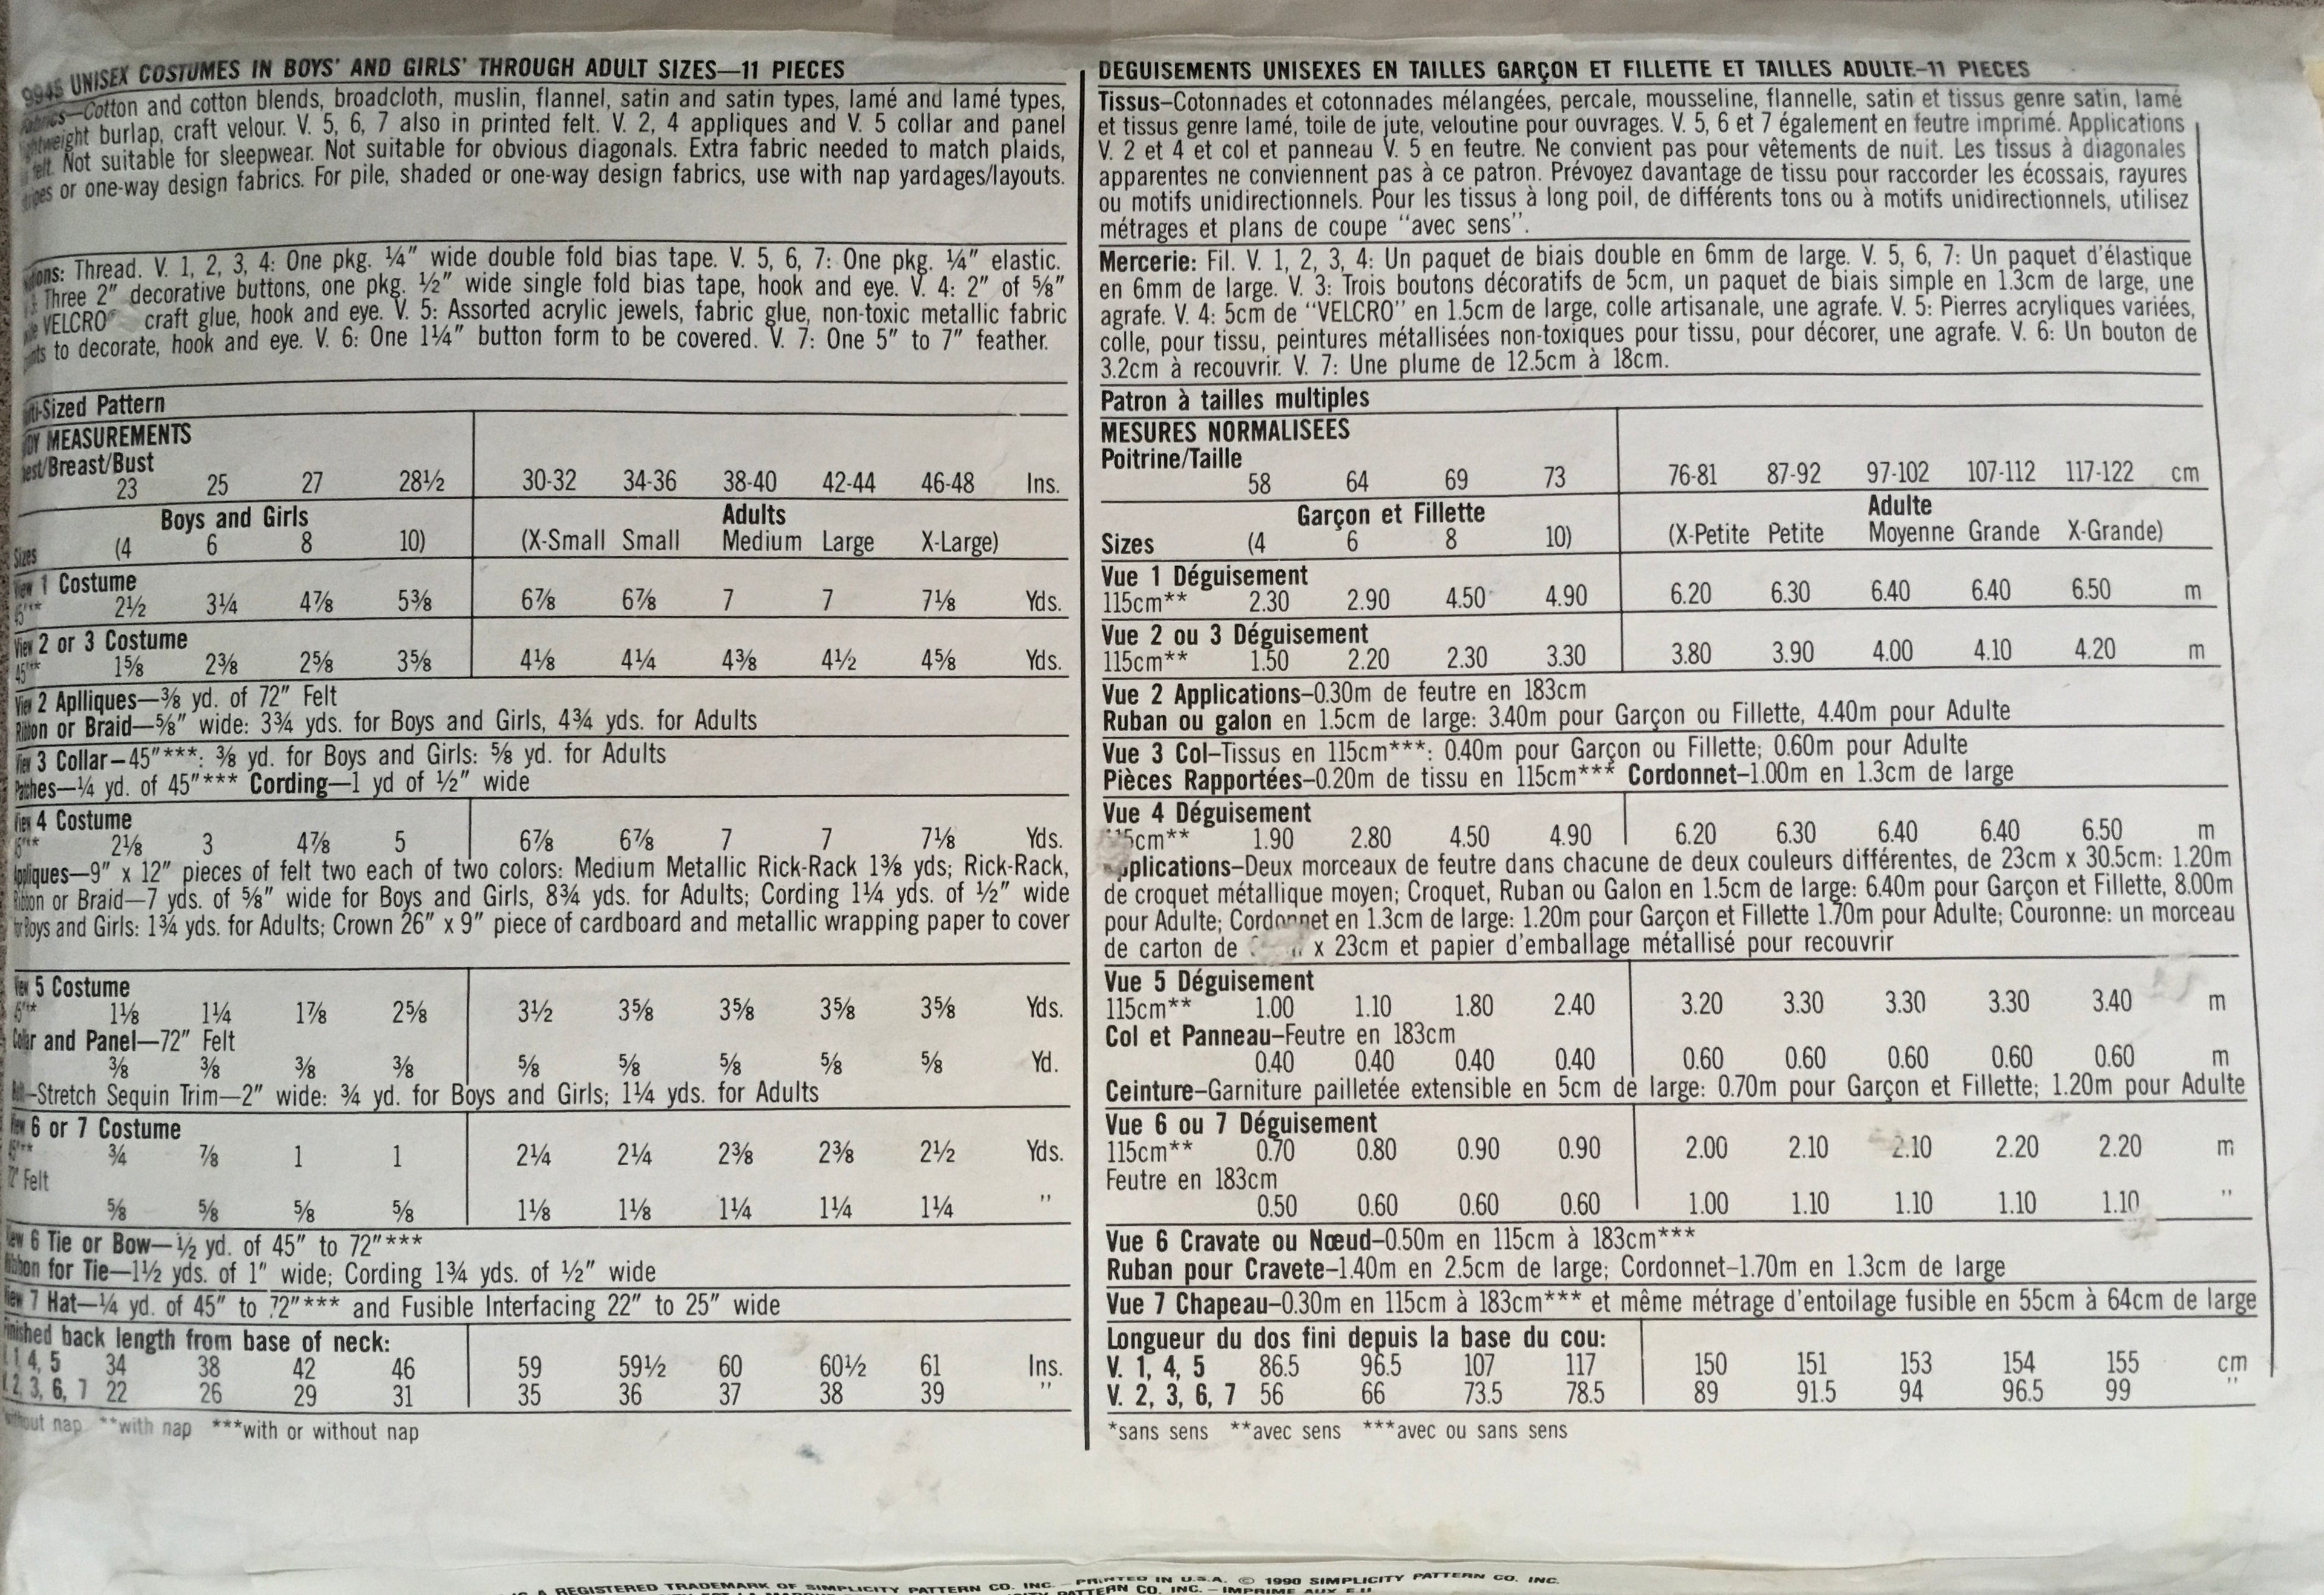 9945 UNISEX COSTUMES IN BOYS' AND GIRLS' THROUGH ADULT SIZES—11 PIECES
Fabrics—Cotton and cotton blends, broadcloth, muslin, flannel, satin and satin types, lamé and lamé types,
burlap, craft velour. V. 5, 6, 7 also in printed felt. V. 2, 4 appliques and V. 5 collar and panel
felt. Not suitable for sleepwear. Not suitable for obvious diagonals. Extra fabric needed to match plaids,
or one-way design fabrics. For pile, shaded or one-way design fabrics, use with nap yardages/layouts.
Thread. V. 1, 2, 3, 4: One pkg. ¼" wide double fold bias tape. V. 5, 6, 7: One pkg. ¼" elastic.
Three 2" decorative buttons, one pkg. ½" wide single fold bias tape, hook and eye. V. 4: 2" of ⅝"
VELCRO® craft glue, hook and eye. V. 5: Assorted acrylic jewels, fabric glue, non-toxic metallic fabric
to decorate, hook and eye. V. 6: One 1¼" button form to be covered. V. 7: One 5" to 7" feather.
Sized Pattern
MEASUREMENTS
/Breast/Bust
23 25 27 28½ 30-32 34-36 38-40 42-44 46-48 Ins.
Boys and Girls Adults
Sizes (4 6 8 10) (X-Small Small Medium Large X-Large)
View 1 Costume
2½ 3¼ 4⅞ 5⅜ 6⅞ 6⅞ 7 7 7⅛ Yds.
View 2 or 3 Costume
45"** 1⅝ 2⅜ 2⅝ 3⅝ 4⅛ 4¼ 4⅜ 4½ 4⅝ Yds.
View 2 Aplliques—⅜ yd. of 72" Felt
Ribbon or Braid—⅝" wide: 3¾ yds. for Boys and Girls, 4¾ yds. for Adults
View 3 Collar—45"***: ⅜ yd. for Boys and Girls: ⅝ yd. for Adults
Patches—¼ yd. of 45"*** Cording—1 yd of ½" wide
View 4 Costume
2⅛ 3 4⅞ 5 6⅞ 6⅞ 7 7 7⅛ Yds.
Appliques—9" x 12" pieces of felt two each of two colors: Medium Metallic Rick-Rack 1⅜ yds; Rick-Rack,
Ribbon or Braid—7 yds. of ⅝" wide for Boys and Girls, 8¾ yds. for Adults; Cording 1¼ yds. of ½" wide
for Boys and Girls: 1¾ yds. for Adults; Crown 26" x 9" piece of cardboard and metallic wrapping paper to cover
View 5 Costume
1⅛ 1¼ 1⅞ 2⅝ 3½ 3⅝ 3⅝ 3⅝ 3⅝ Yds.
Collar and Panel—72" Felt
⅜ ⅜ ⅜ ⅜ ⅝ ⅝ ⅝ ⅝ ⅝ Yd.
—Stretch Sequin Trim—2" wide: ¾ yd. for Boys and Girls; 1¼ yds. for Adults
View 6 or 7 Costume
45"** ¾ ⅞ 1 1 2¼ 2¼ 2⅜ 2⅜ 2½ Yds.
Felt
⅝ ⅝ ⅝ ⅝ 1⅛ 1⅛ 1¼ 1¼ 1¼ "
View 6 Tie or Bow—½ yd. of 45" to 72"***
Ribbon for Tie—1½ yds. of 1" wide; Cording 1¾ yds. of ½" wide
View 7 Hat—¼ yd. of 45" to 72"*** and Fusible Interfacing 22" to 25" wide
Finished back length from base of neck:
1, 4, 5 34 38 42 46 59 59½ 60 60½ 61 Ins.
2, 3, 6, 7 22 26 29 31 35 36 37 38 39 "
without nap **with nap ***with or without nap
DEGUISEMENTS UNISEXES EN TAILLES GARÇON ET FILLETTE ET TAILLES ADULTE–11 PIECES
Tissus–Cotonnades et cotonnades mélangées, percale, mousseline, flannelle, satin et tissus genre satin, lamé
et tissus genre lamé, toile de jute, veloutine pour ouvrages. V. 5, 6 et 7 également en feutre imprimé. Applications
V. 2 et 4 et col et panneau V. 5 en feutre. Ne convient pas pour vêtements de nuit. Les tissus à diagonales
apparentes ne conviennent pas à ce patron. Prévoyez davantage de tissu pour raccorder les écossais, rayures
ou motifs unidirectionnels. Pour les tissus à long poil, de différents tons ou à motifs unidirectionnels, utilisez
métrages et plans de coupe "avec sens".
Mercerie: Fil. V. 1, 2, 3, 4: Un paquet de biais double en 6mm de large. V. 5, 6, 7: Un paquet d'élastique
en 6mm de large. V. 3: Trois boutons décoratifs de 5cm, un paquet de biais simple en 1.3cm de large, une
agrafe. V. 4: 5cm de "VELCRO" en 1.5cm de large, colle artisanale, une agrafe. V. 5: Pierres acryliques variées,
colle, pour tissu, peintures métallisées non-toxiques pour tissu, pour décorer, une agrafe. V. 6: Un bouton de
3.2cm à recouvrir. V. 7: Une plume de 12.5cm à 18cm.
Patron à tailles multiples
MESURES NORMALISEES
Poitrine/Taille
58 64 69 73 76-81 87-92 97-102 107-112 117-122 cm
Garçon et Fillette Adulte
Sizes (4 6 8 10) (X-Petite Petite Moyenne Grande X-Grande)
Vue 1 Déguisement
115cm** 2.30 2.90 4.50 4.90 6.20 6.30 6.40 6.40 6.50 m
Vue 2 ou 3 Déguisement
115cm** 1.50 2.20 2.30 3.30 3.80 3.90 4.00 4.10 4.20 m
Vue 2 Applications–0.30m de feutre en 183cm
Ruban ou galon en 1.5cm de large: 3.40m pour Garçon ou Fillette, 4.40m pour Adulte
Vue 3 Col–Tissus en 115cm***: 0.40m pour Garçon ou Fillette; 0.60m pour Adulte
Pièces Rapportées–0.20m de tissu en 115cm*** Cordonnet–1.00m en 1.3cm de large
Vue 4 Déguisement
115cm** 1.90 2.80 4.50 4.90 6.20 6.30 6.40 6.40 6.50 m
Applications–Deux morceaux de feutre dans chacune de deux couleurs différentes, de 23cm x 30.5cm: 1.20m
de croquet métallique moyen; Croquet, Ruban ou Galon en 1.5cm de large: 6.40m pour Garçon et Fillette, 8.00m
pour Adulte; Cordonnet en 1.3cm de large: 1.20m pour Garçon et Fillette 1.70m pour Adulte; Couronne: un morceau
de carton de x 23cm et papier d'emballage métallisé pour recouvrir
Vue 5 Déguisement
115cm** 1.00 1.10 1.80 2.40 3.20 3.30 3.30 3.30 3.40 m
Col et Panneau–Feutre en 183cm
0.40 0.40 0.40 0.40 0.60 0.60 0.60 0.60 0.60 m
Ceinture–Garniture pailletée extensible en 5cm de large: 0.70m pour Garçon et Fillette; 1.20m pour Adulte
Vue 6 ou 7 Déguisement
115cm** 0.70 0.80 0.90 0.90 2.00 2.10 2.10 2.20 2.20 m
Feutre en 183cm
0.50 0.60 0.60 0.60 1.00 1.10 1.10 1.10 1.10 "
Vue 6 Cravate ou Nœud–0.50m en 115cm à 183cm***
Ruban pour Cravete–1.40m en 2.5cm de large; Cordonnet–1.70m en 1.3cm de large
Vue 7 Chapeau–0.30m en 115cm à 183cm*** et même métrage d'entoilage fusible en 55cm à 64cm de large
Longueur du dos fini depuis la base du cou:
V. 1, 4, 5 86.5 96.5 107 117 150 151 153 154 155 cm
V. 2, 3, 6, 7 56 66 73.5 78.5 89 91.5 94 96.5 99 "
*sans sens **avec sens ***avec ou sans sens
A REGISTERED TRADEMARK OF SIMPLICITY PATTERN CO. INC. – PRINTED IN U.S.A. © 1990 SIMPLICITY PATTERN CO. INC.
PATTERN CO. INC. – IMPRIME AUX E.U.